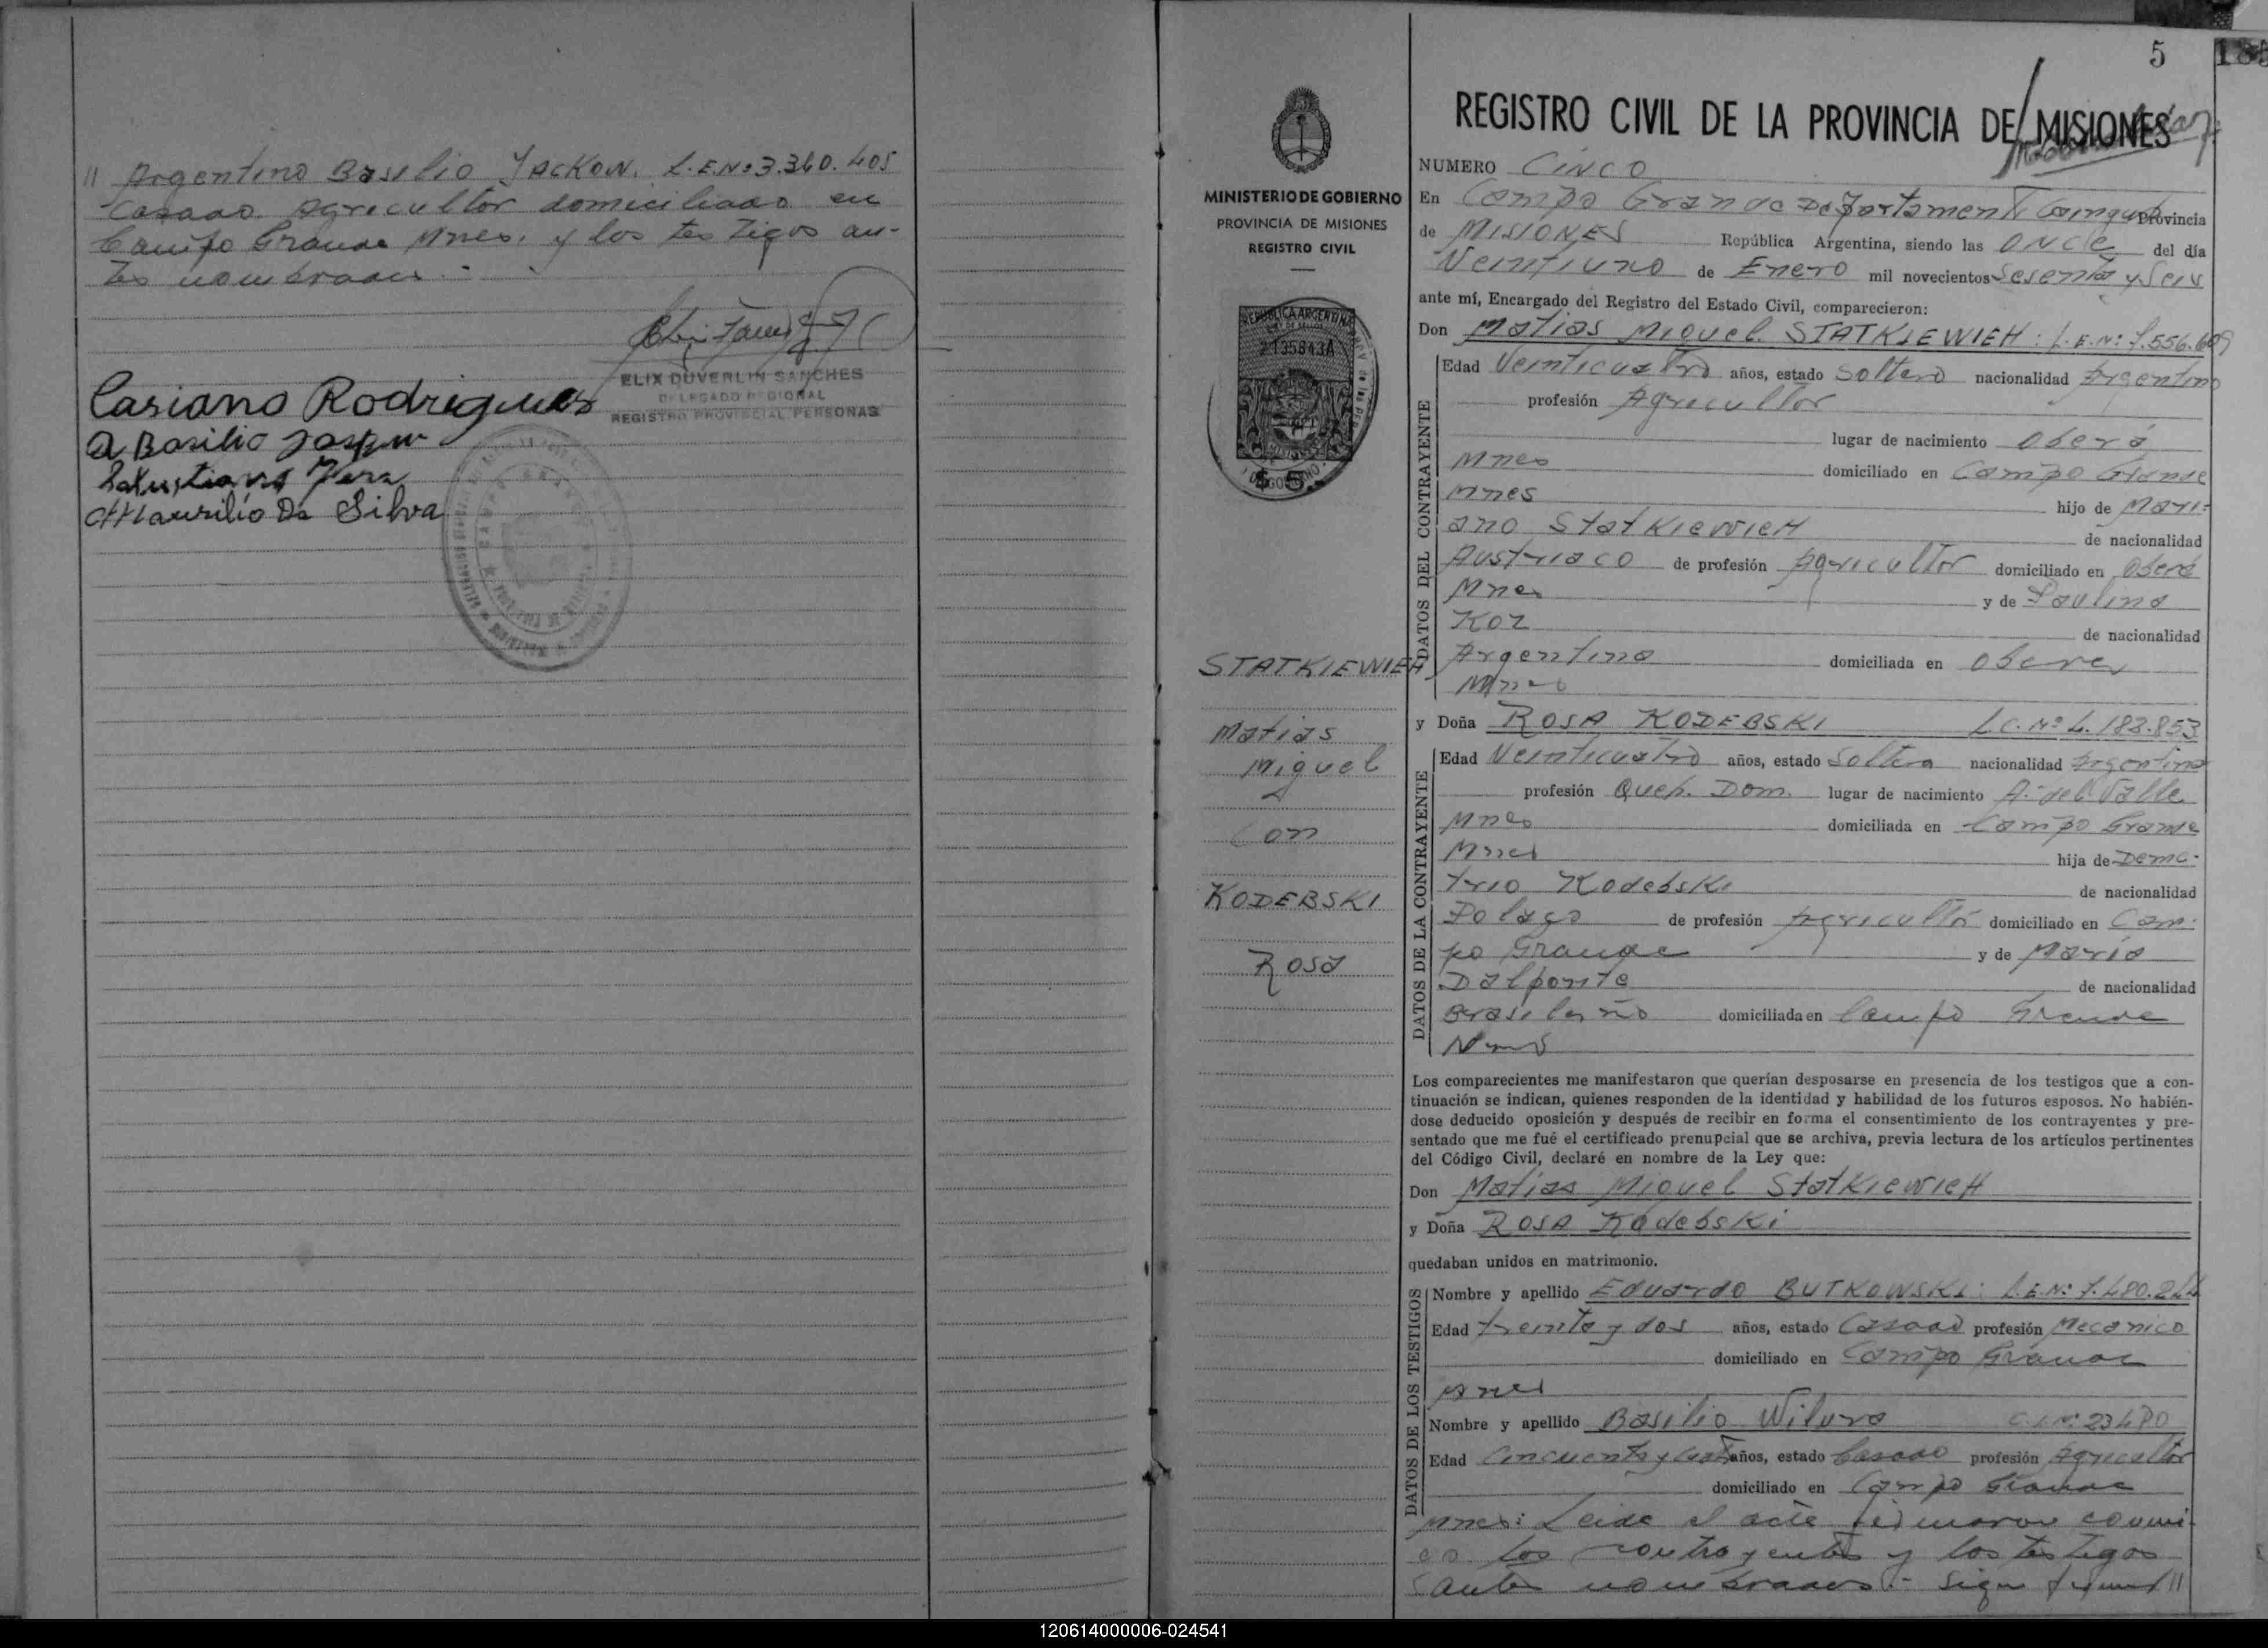 // Argentino Basilio JACKOW. L.E.Nº 3.360.405
Casado Agricultor domiciliado en
Campo Grande Mnes. y los testigos an-
tes nombrados.-
ELIX DUVERLIN SANCHES
DELEGADO REGIONAL
REGISTRO PROVINCIAL PERSONAS
Casiano Rodrigues
Basilio
Salustiano
Maurilio Da Silva
5
MINISTERIO DE GOBIERNO
PROVINCIA DE MISIONES
REGISTRO CIVIL
REPUBLICA ARGENTINA
2135843A
$ 5.
STATKIEWIEH
Matias
Miguel
Con
KODEBSKI
Rosa
REGISTRO CIVIL DE LA PROVINCIA DE MISIONES
NUMERO CINCO
En Campo Grande Departamento Caingua Provincia
de MISIONES República Argentina, siendo las ONCE del día
Veintiuno de Enero mil novecientos Sesenta y Seis
ante mí, Encargado del Registro del Estado Civil, comparecieron:
Don Matias Miguel STATKIEWIEH: L.E.Nº 7.556.609
DATOS DEL CONTRAYENTE
Edad Veinticuatro años, estado Soltero nacionalidad Argentino
profesión Agricultor
lugar de nacimiento Oberá
Mnes domiciliado en Campo Grande
Mnes hijo de Mari-
ano StatKiewieH de nacionalidad
Austriaco de profesión Agricultor domiciliado en Oberá
Mnes y de Paulina
Koz de nacionalidad
Argentina domiciliada en Obera
Mnes
y Doña ROSA KODEBSKI L.C.Nº 4.183.853
DATOS DE LA CONTRAYENTE
Edad Veinticuatro años, estado Soltera nacionalidad Argentina
profesión Queh. Dom. lugar de nacimiento A. del Valle
Mnes domiciliada en Campo Grande
Mnes hija de Deme-
trio Kodebski de nacionalidad
Polaco de profesión Agricultor domiciliado en Cam-
po Grande y de Maria
Dalponte de nacionalidad
Brasileña domiciliada en Campo Grande
Mnes
Los comparecientes me manifestaron que querían desposarse en presencia de los testigos que a con-
tinuación se indican, quienes responden de la identidad y habilidad de los futuros esposos. No habién-
dose deducido oposición y después de recibir en forma el consentimiento de los contrayentes y pre-
sentado que me fué el certificado prenupcial que se archiva, previa lectura de los artículos pertinentes
del Código Civil, declaré en nombre de la Ley que:
Don Matias Miguel StatKiewieH
y Doña ROSA Kodebski
quedaban unidos en matrimonio.
DATOS DE LOS TESTIGOS
Nombre y apellido Eduardo BUTKOWSKI: L.E.Nº 7.480.244
Edad treinta y dos años, estado Casado profesión Mecanico
domiciliado en Campo Grande
Mnes
Nombre y apellido Basilio Wilura C.I.Nº 23480
Edad Cincuenta y años, estado Casado profesión Agricultor
domiciliado en Campo Grande
Mnes: Leida el acta firmaron conmi-
go los contrayentes y los testigos
antes nombrados.- Sigue //
120614000006-024541